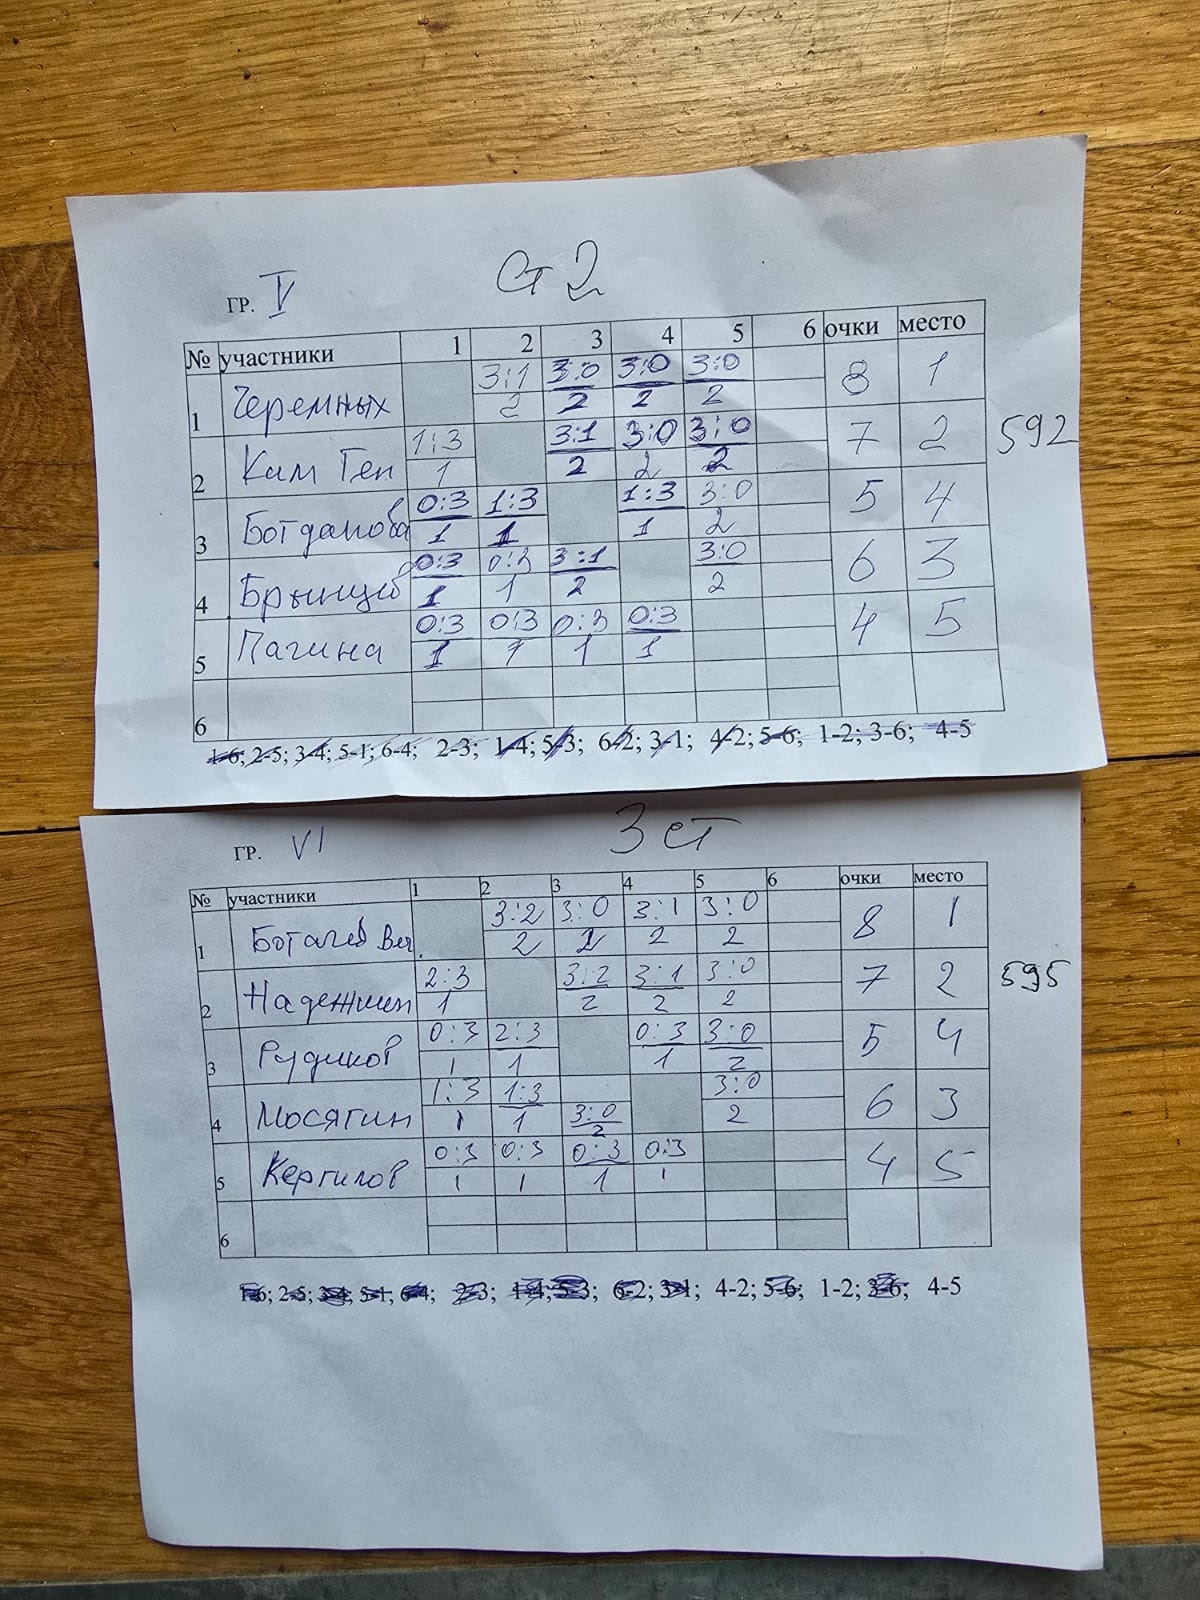 Ст 2
ГР. V
№ участники 1 2 3 4 5 6 очки место
1 Черемных 3:1 3:0 3:0 3:0 8 1
2 2 2 2
2 Ким Ген 1:3 3:1 3:0 3:0 7 2 592
1 2 2 2
3 Богданова 0:3 1:3 1:3 3:0 5 4
1 1 1 2
4 Брынцев 0:3 0:3 3:1 3:0 6 3
1 1 2 2
5 Пагина 0:3 0:3 0:3 0:3 4 5
1 1 1 1
6
1-6; 2-5; 3-4; 5-1; 6-4; 2-3; 1-4; 5-3; 6-2; 3-1; 4-2; 5-6; 1-2; 3-6; 4-5
3 ст
ГР. VI
№ участники 1 2 3 4 5 6 очки место
1 3:2 3:0 3:1 3:0 8 1
2 2 2 2
2 Надежкин 2:3 3:2 3:1 3:0 7 2 595
1 2 2 2
3 Рудиков 0:3 2:3 0:3 3:0 5 4
1 1 1 2
4 Мосягин 1:3 1:3 3:0 3:0 6 3
1 1 2 2
5 Кергилов 0:3 0:3 0:3 0:3 4 5
1 1 1 1
6
1-6; 2-5; 3-4; 5-1; 6-4; 2-3; 1-4; 5-3; 6-2; 3-1; 4-2; 5-6; 1-2; 3-6; 4-5